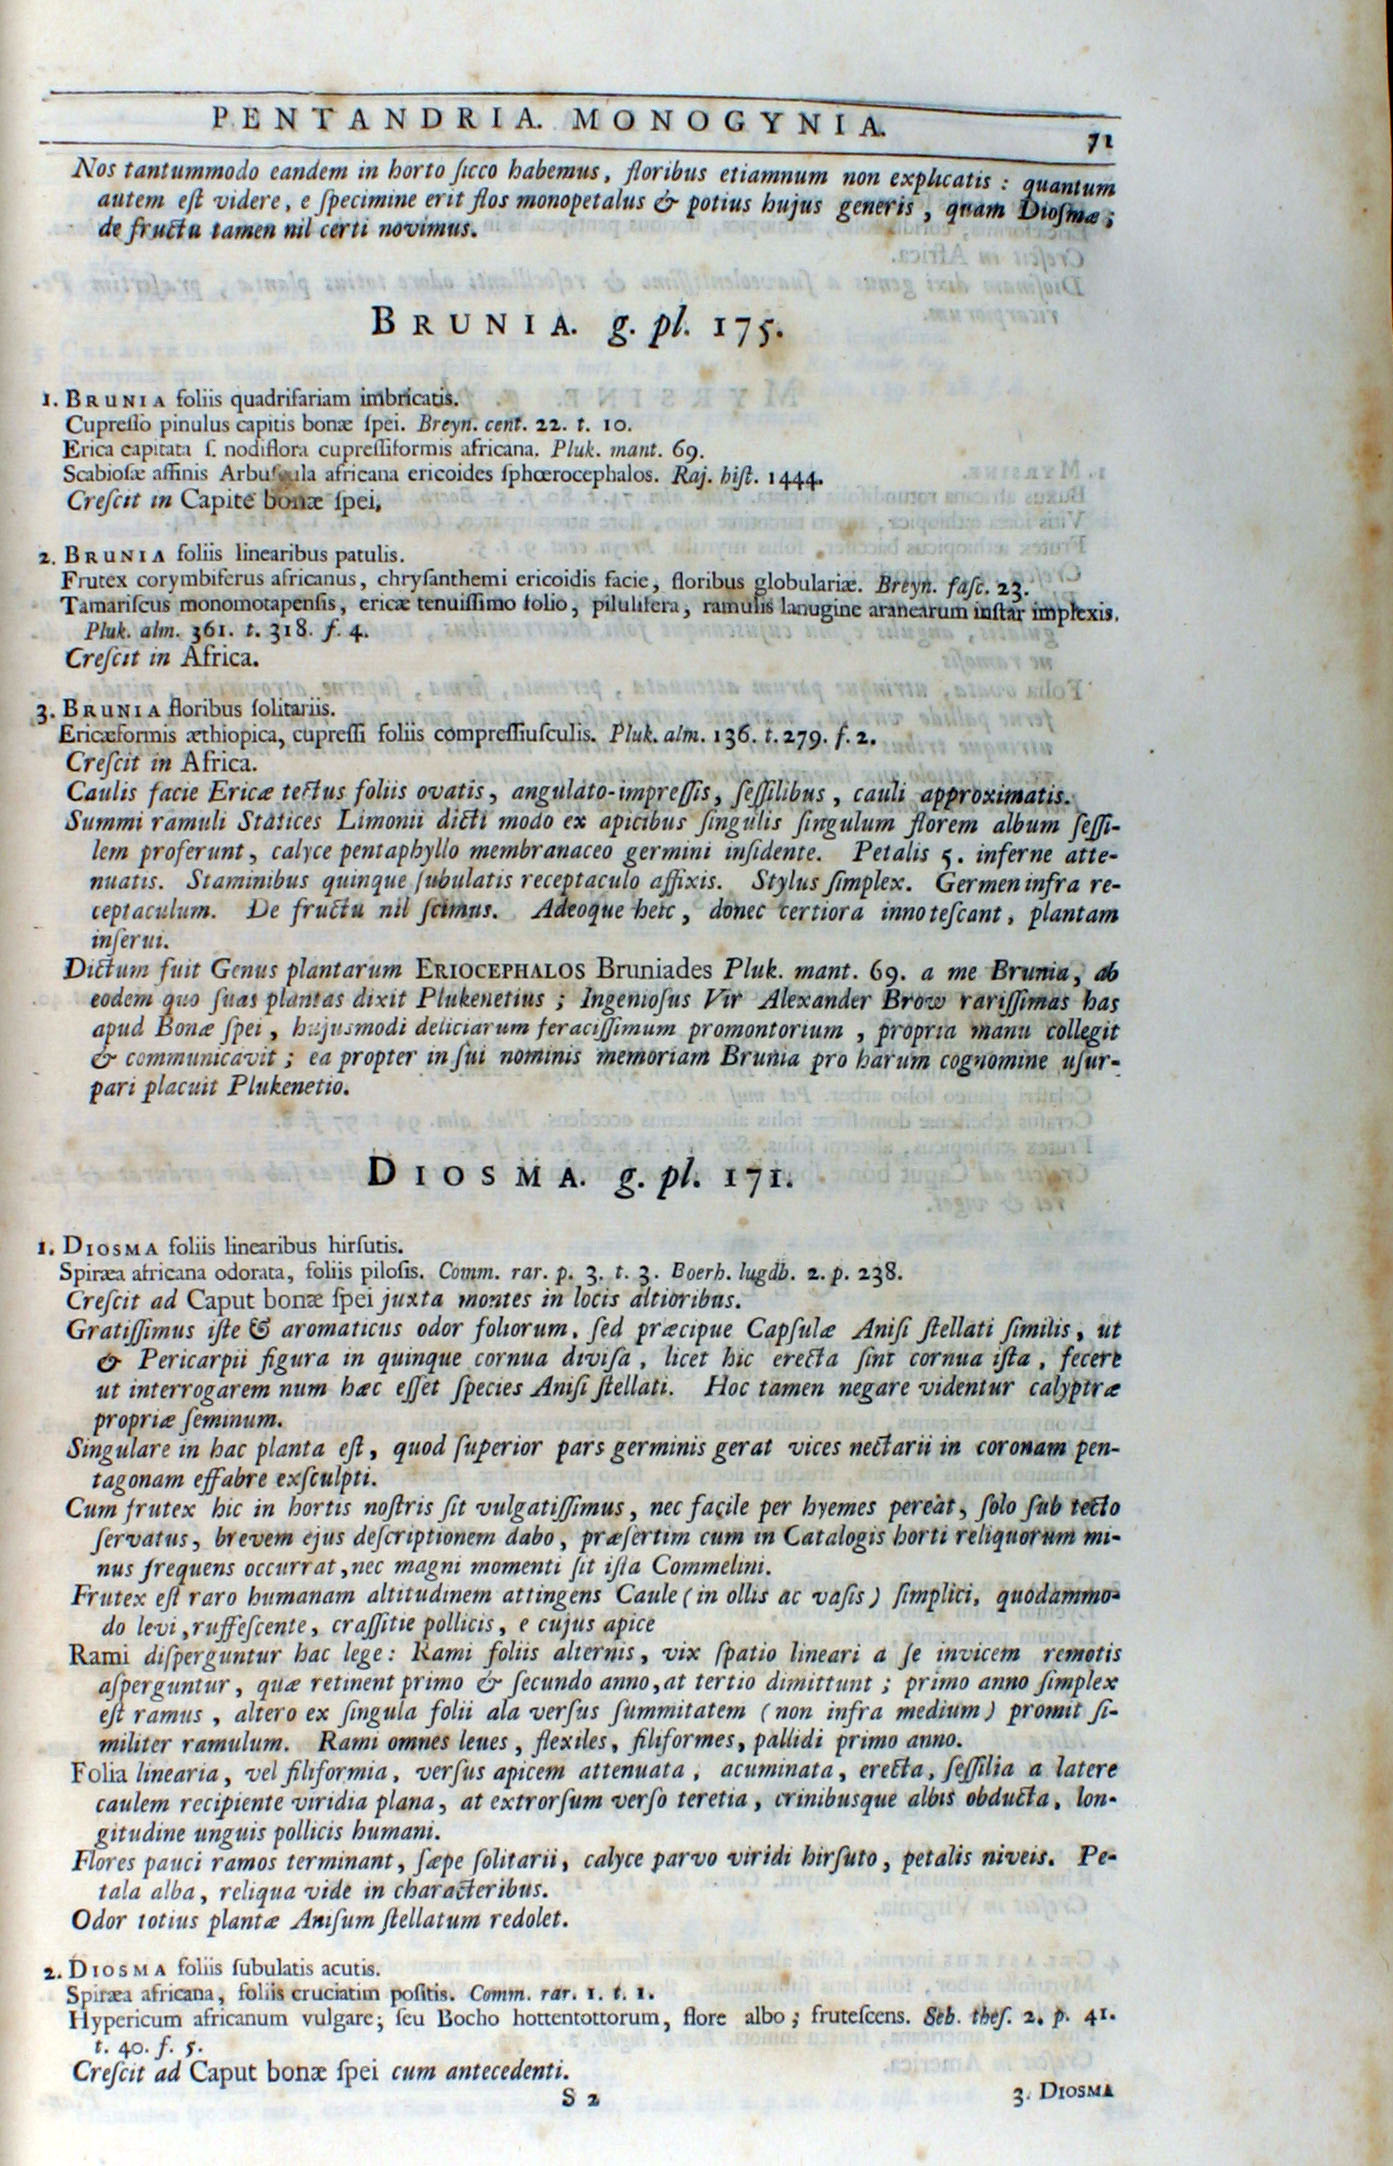 PENTANDRIA. MONOGYNIA.
71
Nos tantummodo eandem in horto ſicco habemus, floribus etiamnum non explicatis: quantum
autem eſt videre, e ſpecimine erit flos monopetalus & potius hujus generis, quam Dioſmæ;
de fructu tamen nil certi novimus.
BRUNIA. g. pl. 175.
1. BRUNIA foliis quadrifariam imbricatis.
Cupreſſo pinulus capitis bonæ ſpei. Breyn. cent. 22. t. 10.
Erica capitata ſ. nodiflora cupreſſiformis africana. Pluk. mant. 69.
Scabioſæ affinis Arbuſcula africana ericoides ſphœrocephalos. Raj. hiſt. 1444.
Creſcit in Capite bonæ ſpei,
2. BRUNIA foliis linearibus patulis.
Frutex corymbiferus africanus, chryſanthemi ericoidis facie, floribus globulariæ. Breyn. faſc. 23.
Tamariſcus monomotapenſis, ericæ tenuiſſimo folio, pilulifera, ramulis lanugine aranearum inſtar implexis.
Pluk. alm. 361. t. 318. f. 4.
Creſcit in Africa.
3. BRUNIA floribus ſolitariis.
Ericæformis æthiopica, cupreſſi foliis compreſſiuſculis. Pluk. alm. 136. t. 279. f. 2.
Creſcit in Africa.
Caulis facie Ericæ tectus foliis ovatis, angulato-impreſſis, ſeſſilibus, cauli approximatis.
Summi ramuli Statices Limonii dicti modo ex apicibus ſingulis ſingulum florem album ſeſſi-
lem proferunt, calyce pentaphyllo membranaceo germini inſidente. Petalis 5. inferne atte-
nuatis. Staminibus quinque ſubulatis receptaculo affixis. Stylus ſimplex. Germen infra re-
ceptaculum. De fructu nil ſcimus. Adeoque heic, donec certiora innoteſcant, plantam
inſerui.
Dictum fuit Genus plantarum ERIOCEPHALOS Bruniades Pluk. mant. 69. a me Brunia, ab
eodem quo ſuas plantas dixit Plukenetius; Ingenioſus Vir Alexander Brow rariſſimas has
apud Bonæ ſpei, hujusmodi deliciarum feraciſſimum promontorium, propria manu collegit
& communicavit; ea propter in ſui nominis memoriam Brunia pro harum cognomine uſur-
pari placuit Plukenetio.
DIOSMA. g. pl. 171.
1. DIOSMA foliis linearibus hirſutis.
Spiræa africana odorata, foliis piloſis. Comm. rar. p. 3. t. 3. Boerh. lugdb. 2. p. 238.
Creſcit ad Caput bonæ ſpei juxta montes in locis altioribus.
Gratiſſimus iſte & aromaticus odor foliorum, ſed præcipue Capſulæ Aniſi ſtellati ſimilis, ut
& Pericarpii figura in quinque cornua diviſa, licet hic erecta ſint cornua iſta, fecere
ut interrogarem num hæc eſſet ſpecies Aniſi ſtellati. Hoc tamen negare videntur calyptræ
propriæ ſeminum.
Singulare in hac planta eſt, quod ſuperior pars germinis gerat vices nectarii in coronam pen-
tagonam effabre exſculpti.
Cum frutex hic in hortis noſtris ſit vulgatiſſimus, nec facile per hyemes pereat, ſolo ſub tecto
ſervatus, brevem ejus deſcriptionem dabo, præſertim cum in Catalogis horti reliquorum mi-
nus frequens occurrat, nec magni momenti ſit iſta Commelini.
Frutex eſt raro humanam altitudinem attingens Caule (in ollis ac vaſis) ſimplici, quodammo-
do levi, ruffeſcente, craſſitie pollicis, e cujus apice
Rami diſperguntur hac lege: Rami foliis alternis, vix ſpatio lineari a ſe invicem remotis
aſperguntur, quæ retinent primo & ſecundo anno, at tertio dimittunt; primo anno ſimplex
eſt ramus, altero ex ſingula folii ala verſus ſummitatem (non infra medium) promit ſi-
militer ramulum. Rami omnes leues, flexiles, filiformes, pallidi primo anno.
Folia linearia, vel filiformia, verſus apicem attenuata, acuminata, erecta, ſeſſilia a latere
caulem recipiente viridia plana, at extrorſum verſo teretia, crinibusque albis obducta, lon-
gitudine unguis pollicis humani.
Flores pauci ramos terminant, ſæpe ſolitarii, calyce parvo viridi hirſuto, petalis niveis. Pe-
tala alba, reliqua vide in characteribus.
Odor totius plantæ Aniſum ſtellatum redolet.
2. DIOSMA foliis ſubulatis acutis.
Spiræa africana, foliis cruciatim poſitis. Comm. rar. 1. t. 1.
Hypericum africanum vulgare; ſeu Bocho hottentottorum, flore albo; fruteſcens. Seb. theſ. 2. p. 41.
t. 40. f. 5.
Creſcit ad Caput bonæ ſpei cum antecedenti.
S 2
3. DIOSMA